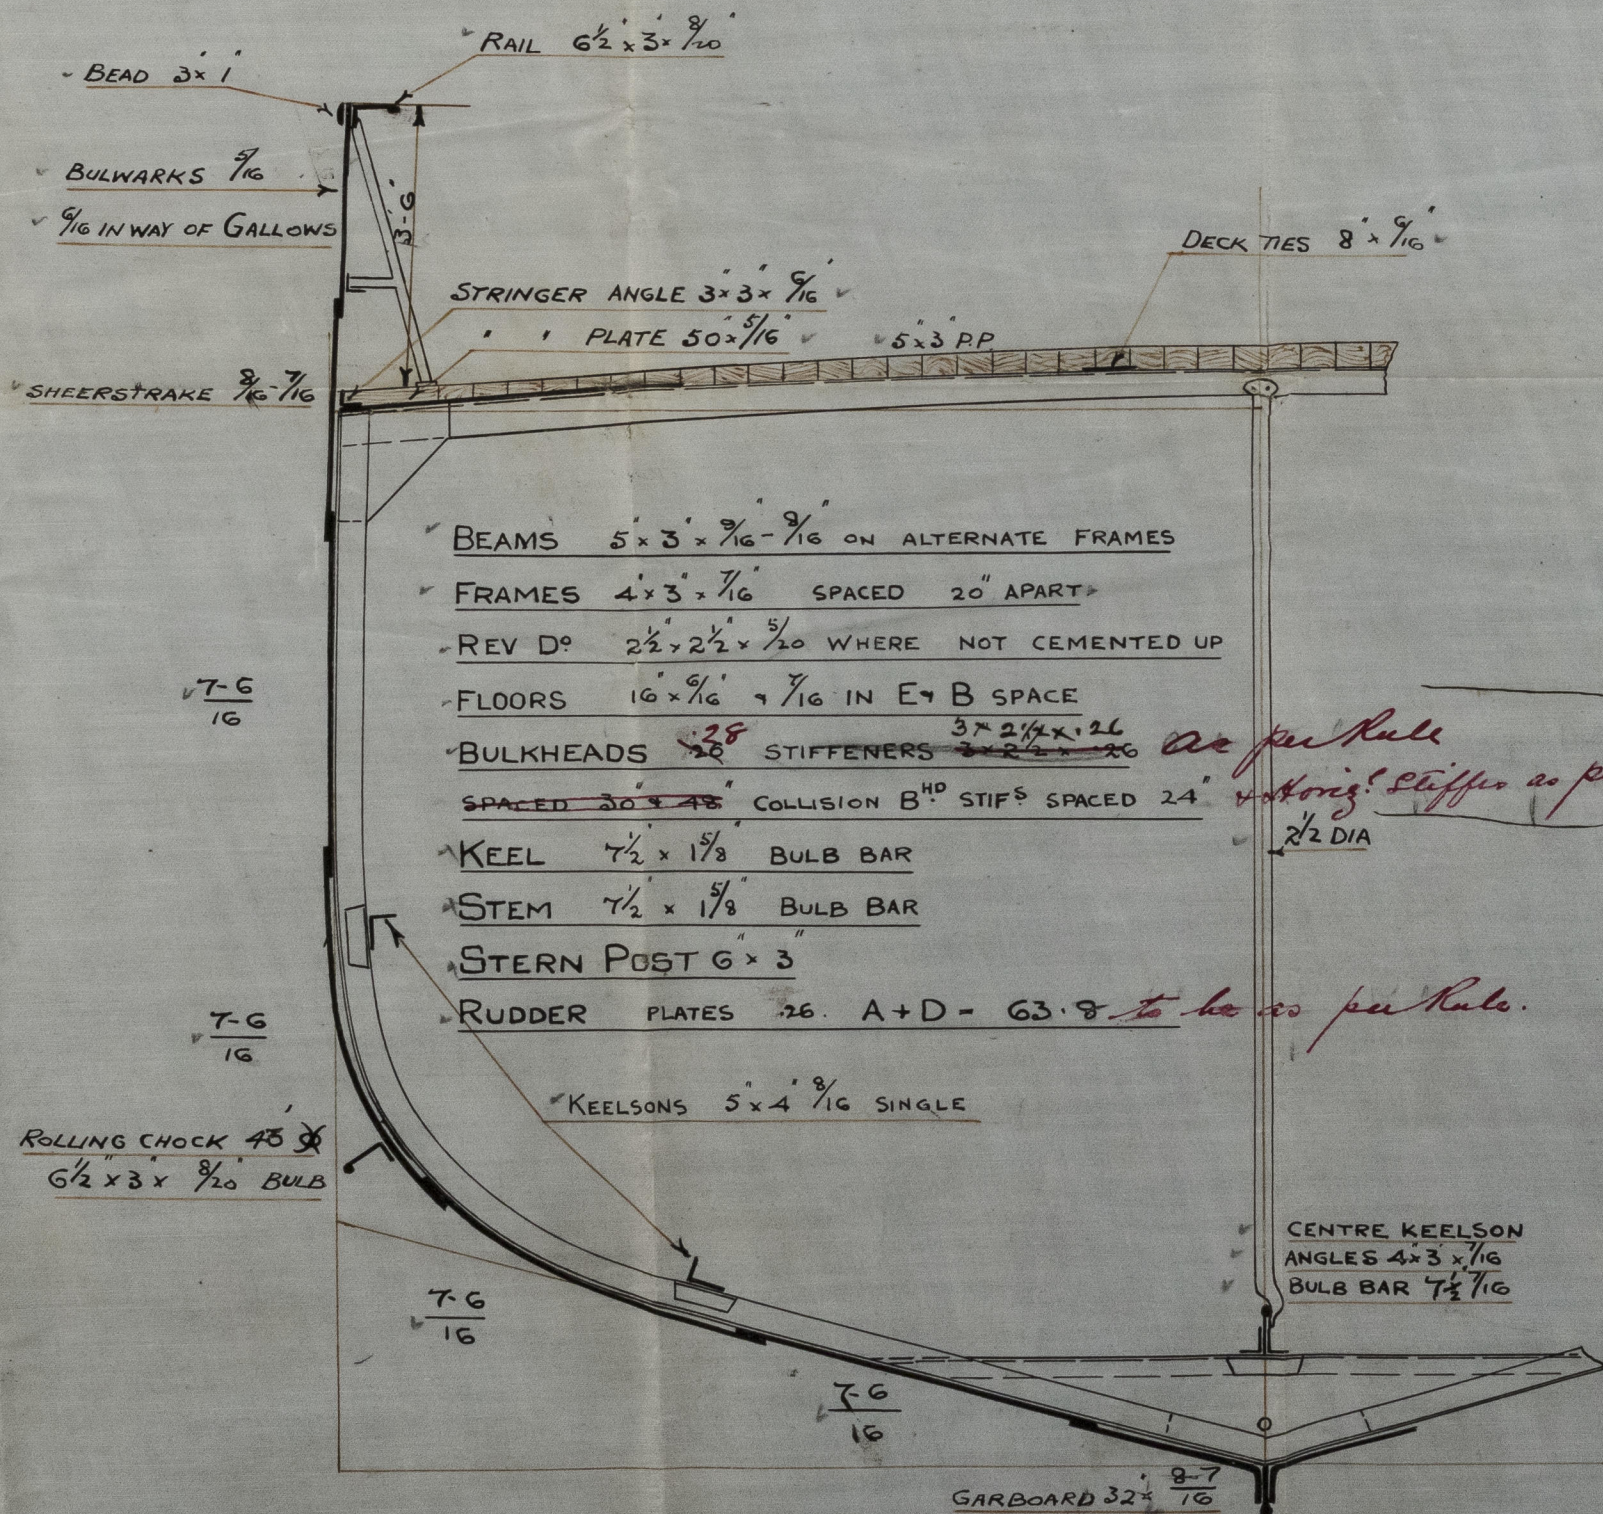 RAIL 6½" × 3" × 8/20"
BEAD 3" × 1"
BULWARKS 5/16
6/16 IN WAY OF GALLOWS
3'-6"
DECK TIES 8" × 6/16"
STRINGER ANGLE 3" × 3" × 6/16"
" " PLATE 50" × 5/16"
5" × 3" P.P.
SHEERSTRAKE 8/16 - 7/16
BEAMS 5" × 3" × 9/16" - 8/16" ON ALTERNATE FRAMES
FRAMES 4" × 3" × 7/16" SPACED 20" APART
REV Dº 2½" × 2½" × 5/20 WHERE NOT CEMENTED UP
7-6
16
FLOORS 16" × 6/16" & 7/16 IN E & B SPACE
3 × 2¼ × .26
BULKHEADS .28 26 STIFFENERS 3 × 2½ × .26 as per Rule
SPACED 30" & 48" COLLISION BHD STIFS SPACED 24" & Horizl Stiffrs as p
2½ DIA
KEEL 7½" × 1⅝" BULB BAR
STEM 7½" × 1⅝" BULB BAR
STERN POST 6" × 3"
RUDDER PLATES .26. A + D = 63.8 to be as per Rule.
7-6
16
KEELSONS 5" × 4" 8/16 SINGLE
ROLLING CHOCK 43'
6½" × 3" × 8/20" BULB
CENTRE KEELSON
ANGLES 4" × 3" × 7/16
BULB BAR 7½" × 7/16
7-6
16
7-6
16
GARBOARD 32" × 8-7
16